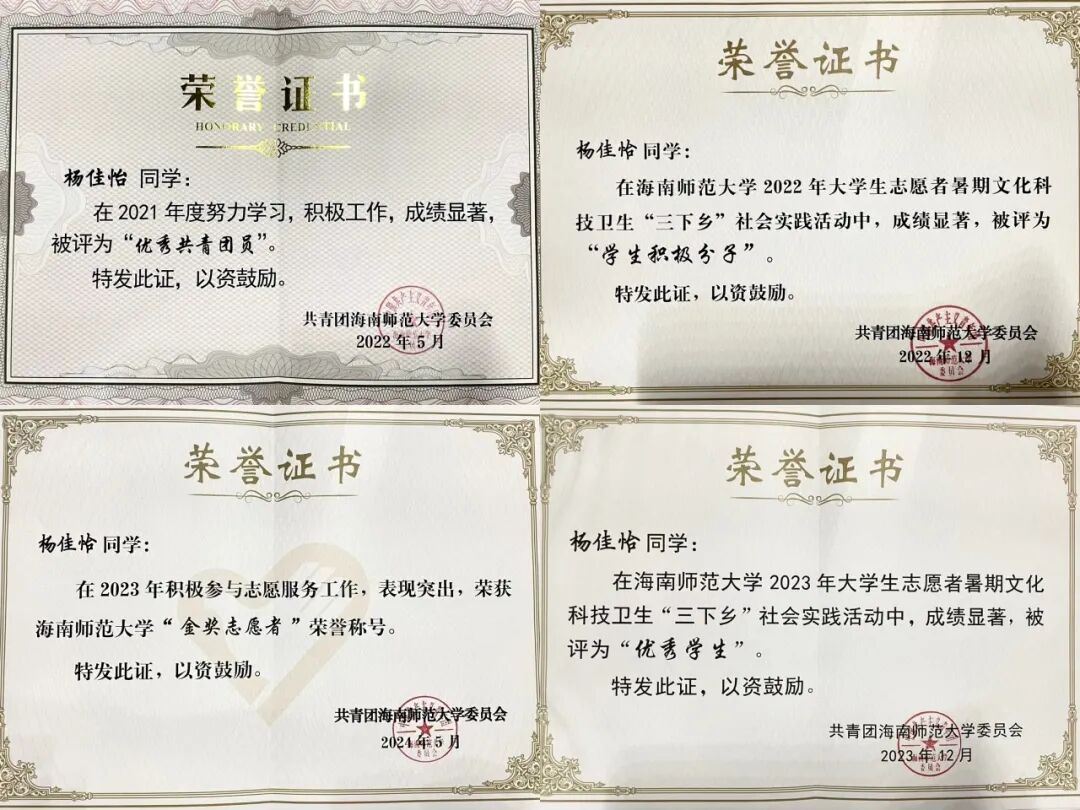 荣誉证书
HONORARY CREDENTIAL
杨佳怡 同学：
在 2021 年度努力学习，积极工作，成绩显著，
被评为“优秀共青团员”。
特发此证，以资鼓励。
共青团海南师范大学委员会
2022 年 5 月
荣誉证书
杨佳怡同学：
在海南师范大学 2022 年大学生志愿者暑期文化科
技卫生“三下乡”社会实践活动中，成绩显著，被评为
“学生积极分子”。
特发此证，以资鼓励。
共青团海南师范大学委员会
2022 年 12 月
荣誉证书
杨佳怡同学：
在 2023 年积极参与志愿服务工作，表现突出，荣获
海南师范大学“金奖志愿者”荣誉称号。
特发此证，以资鼓励。
共青团海南师范大学委员会
2024 年 5 月
荣誉证书
杨佳怡同学：
在海南师范大学 2023 年大学生志愿者暑期文化
科技卫生“三下乡”社会实践活动中，成绩显著，被
评为“优秀学生”。
特发此证，以资鼓励。
共青团海南师范大学委员会
2023 年 12 月